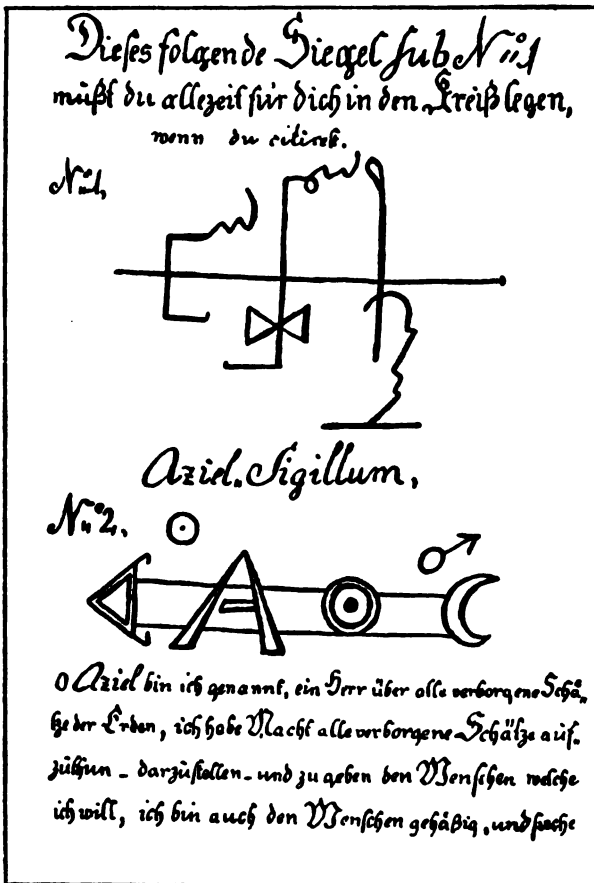 Dieses folgende Siegel sub Nº 1
müßt du allezeit für dich in den Creiß legen,
wenn du citirest.
Nº 1,
Aziel. Sigillum,
Nº 2,
O Aziel bin ich genannt, ein Herr über alle verborgene Schä-
tze der Erden, ich habe Macht alle verborgene Schätze auf-
züthun - darzüstellen - und zu geben den Menschen welche
ich will, ich bin auch den Menschen gehäßig, und